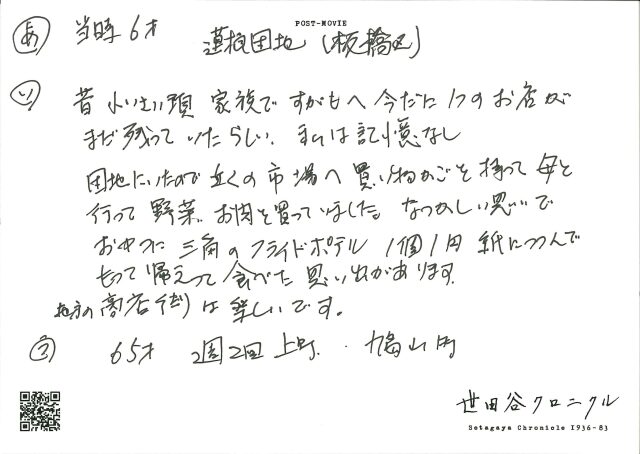 POST-MOVIE
あ 当時6才 蓮根団地(板橋区)
い 昔 小いさい頃 家族で すがもへ 今だに1つのお店が
まだ残っていたらしい、私は記憶なし
団地にいたので近くの市場へ買い物かごを持って母と
行って野菜、お肉を買っていました。なつかしい思いで
おやつに三角のフライドポテト 1個1円 紙につつんで
もって帰えって食べた思い出があります。
地方の商店街は楽しいです。
う 65才 2週2回 上町、
世田谷クロニクル
Setagaya Chronicle 1936-83